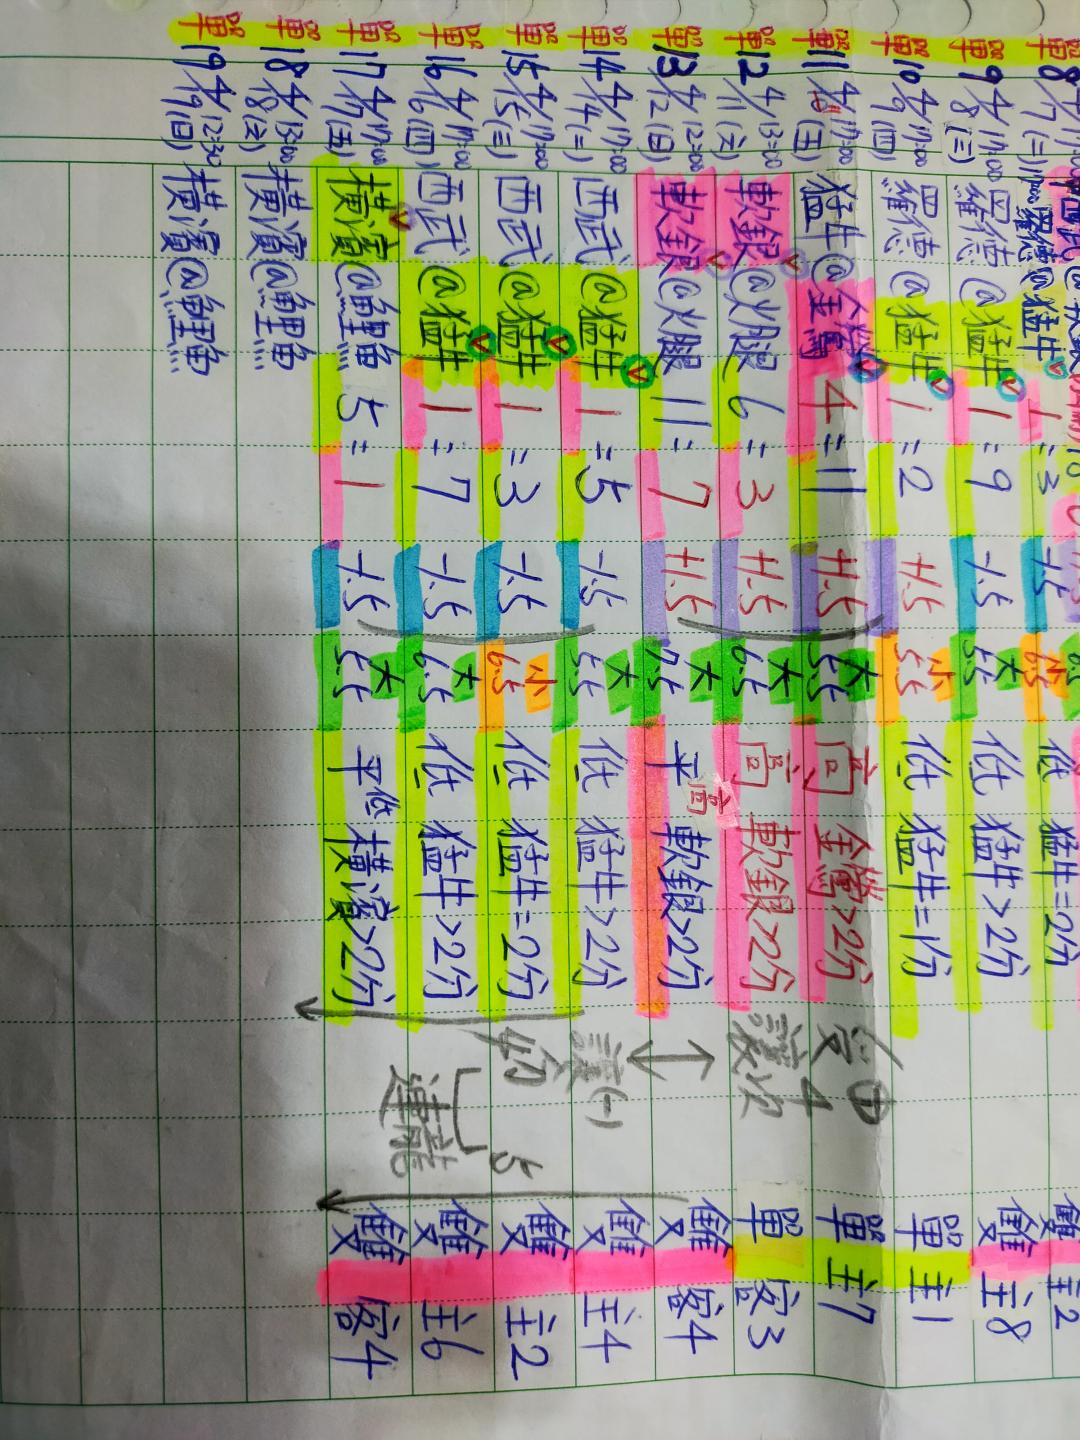 單 8 4/7(二) 羅德@猛牛 1=3 -1.5 小 6.5 低 猛牛=2分 雙 主2
單 9 4/8(三) 17:00 羅德@猛牛 1=9 -1.5 大 5.5 低 猛牛>2分 雙 主8
單 10 4/9(四) 17:00 羅德@猛牛 1=2 +1.5 小 5.5 低 猛牛=1分 單 主1
單 11 4/10(五) 17:00 猛牛@金鶯 4=11 +1.5 大 5.5 高 金鶯>2分 單 主7
單 12 4/11(六) 13:00 軟銀@火腿 6=3 +1.5 大 6.5 高 軟銀>2分 單 客3
單 13 4/12(日) 12:00 軟銀@火腿 11=7 +1.5 大 7.5 平高 軟銀>2分 雙 客4
單 14 4/14(二) 17:00 西武@猛牛 1=5 -1.5 大 5.5 低 猛牛>2分 雙 主4
單 15 4/15(三) 17:00 西武@猛牛 1=3 -1.5 小 6.5 低 猛牛=2分 雙 主2
單 16 4/16(四) 17:00 西武@猛牛 1=7 -1.5 大 6.5 低 猛牛>2分 雙 主6
單 17 4/17(五) 17:00 橫濱@鯉魚 5=1 -1.5 大 5.5 平低 橫濱>2分 雙 客4
單 18 4/18(六) 13:00 橫濱@鯉魚
單 19 4/19(日) 12:30 橫濱@鯉魚
受 4
讓
讓(-)
連龍
5